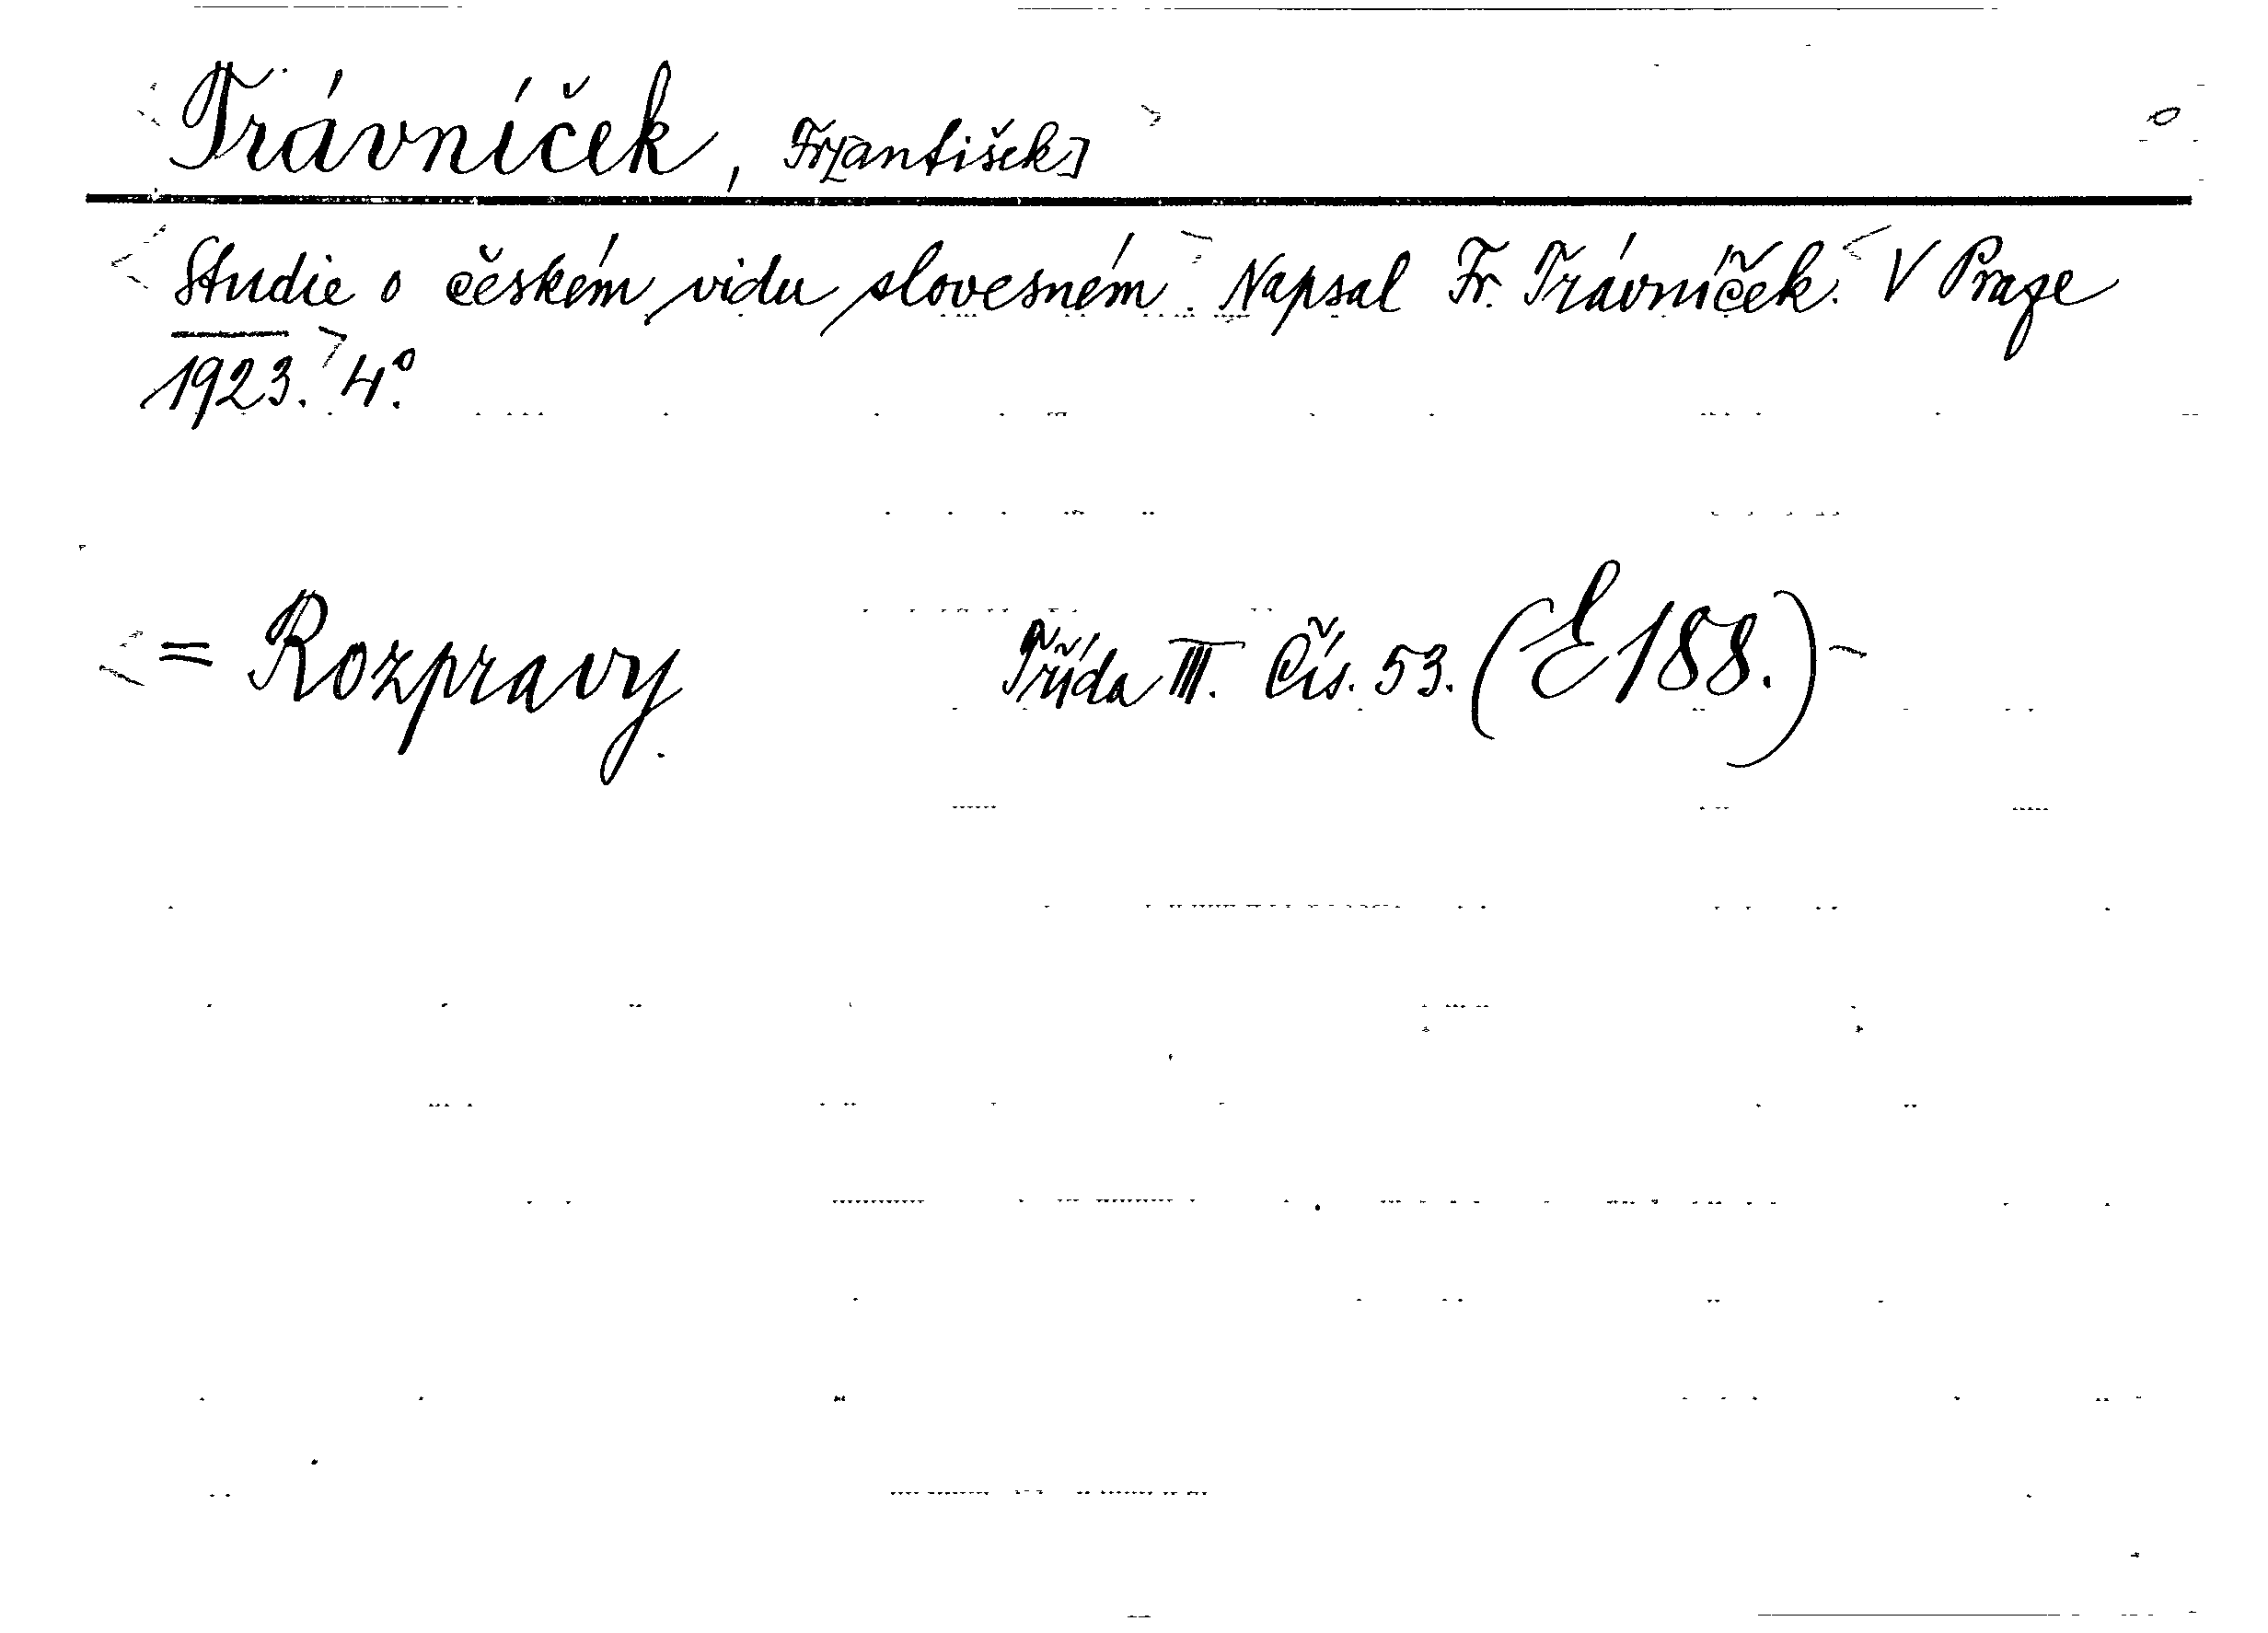 Trávníček, Fr[antišek]
Studie o českém vidu slovesném. Napsal Fr. Trávníček. V Praze
1923. 4°.
= Rozpravy. Třída III. Čís. 53. (E 188.)